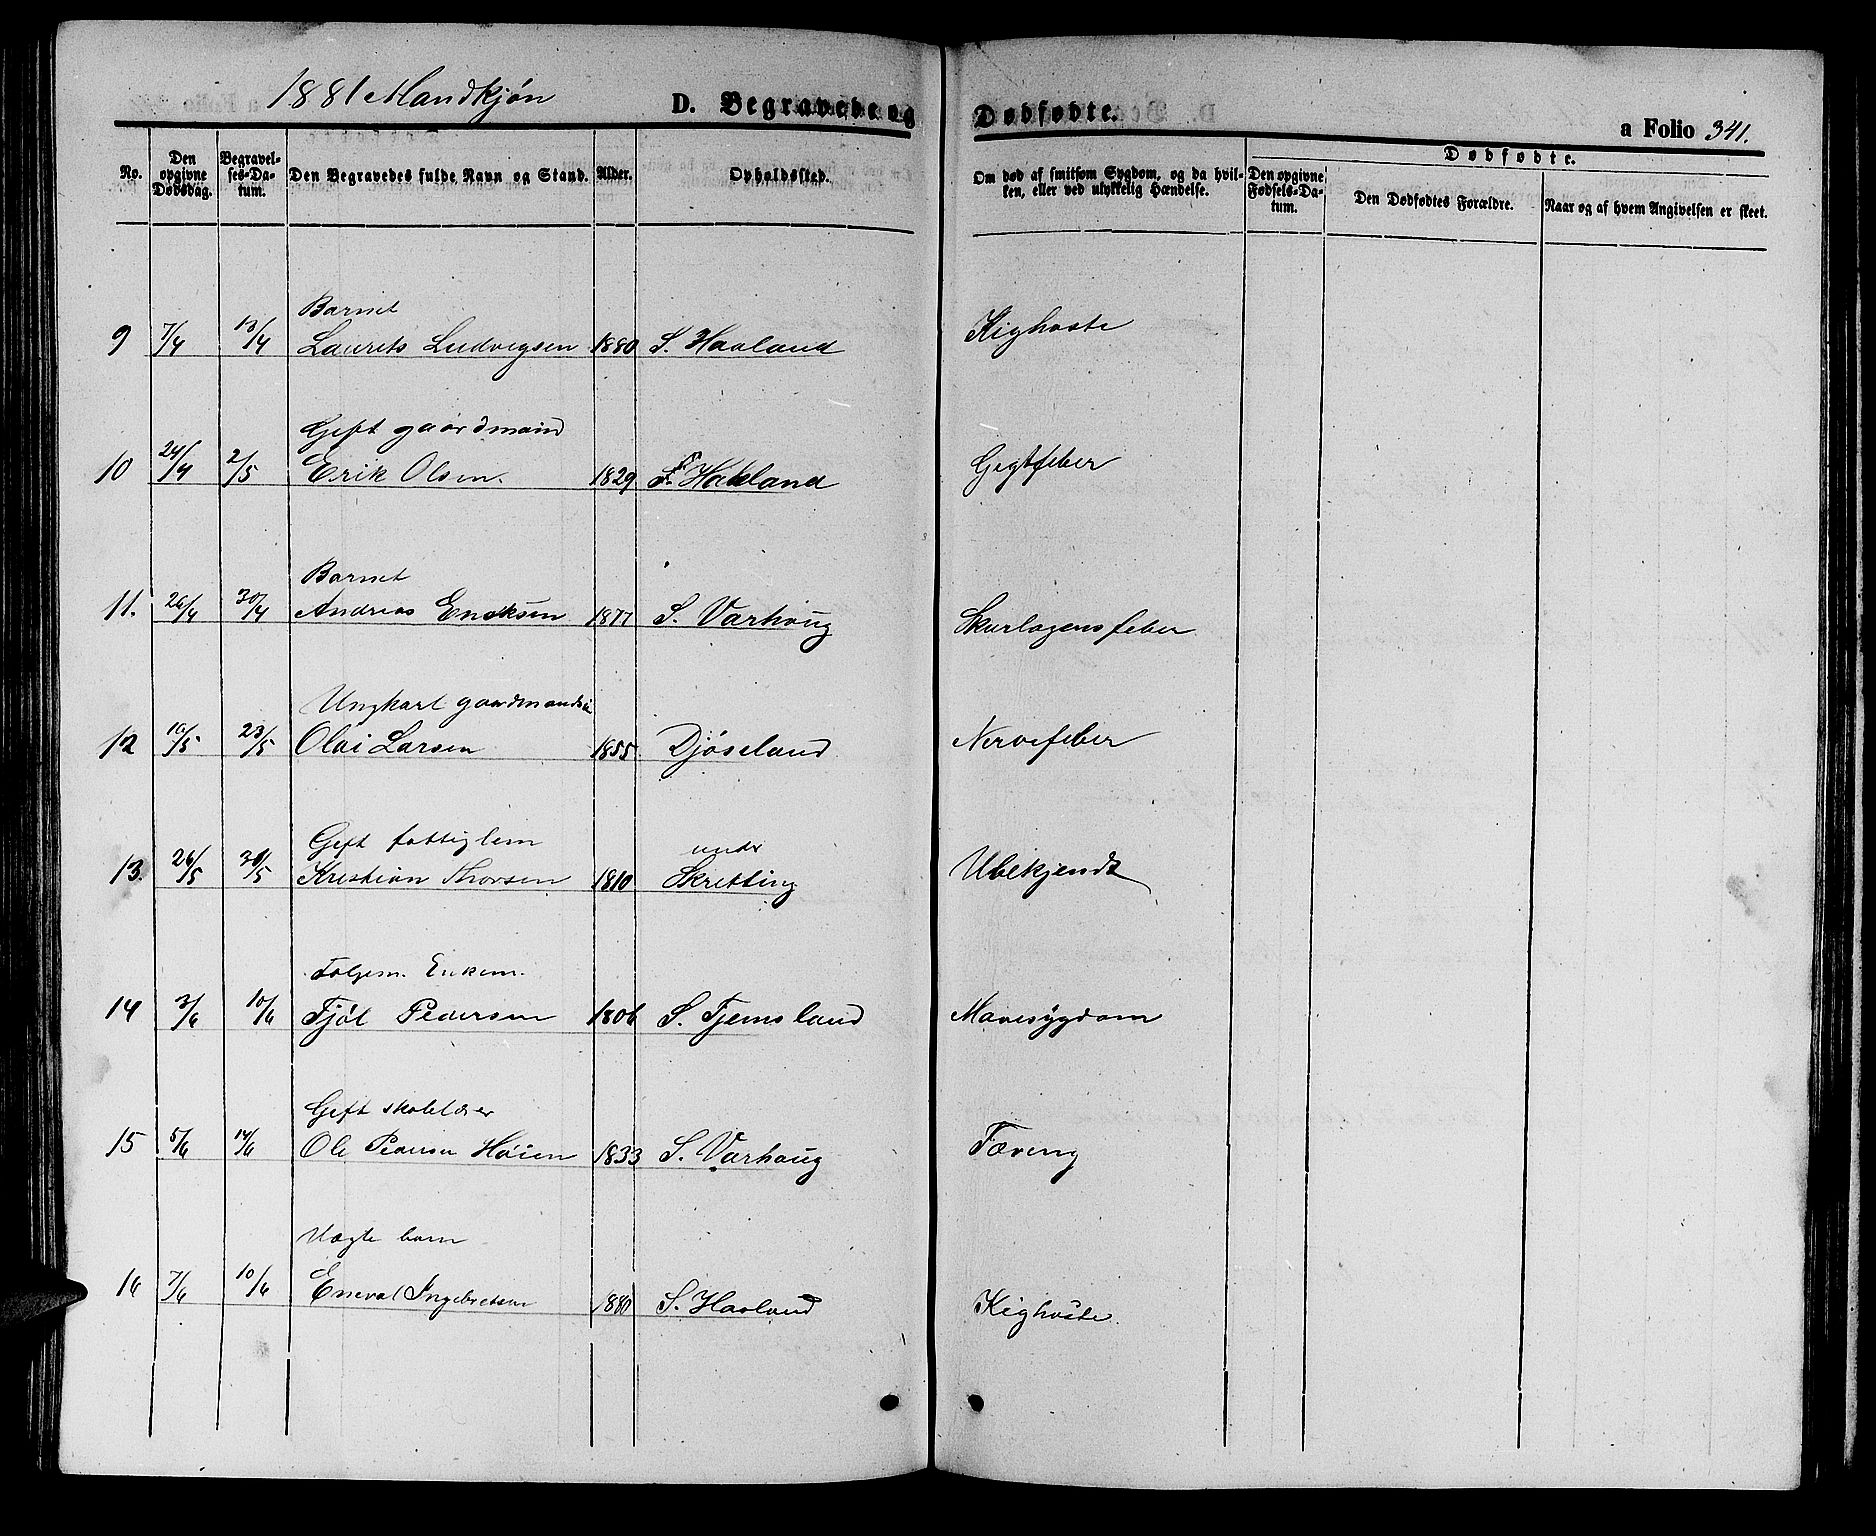 1881 Mandkjøn
D. Begravede og Dødfødte.
a Folio 341.
No.
Den opgivne Dødsdag.
Begravelses-Datum.
Den Begravedes fulde Navn og Stand.
Alder.
Opholdssted.
Om død af smitsom Sygdom, og da hvilken, eller ved ulykkelig Hændelse.
Dødfødte.
Den opgivne Fødsels-Datum.
Den Dødfødtes Forældre.
Naar og af hvem Angivelsen er skeet.
Barnet
9 7/4 13/4 Laurits Ludvigsen 1880 S. Haaland Kighoste
Gift gaardmand
10 24/4 2/5 Erik Olsen. 1829 Haaland Gigtfeber
Barnet
11. 26/4 30/4 Andreas Eriksen 1877 S. Varhoug Skarlagensfeber
Ungkarl gaardmands
12 10/5 23/5 Olai Larsen 1855 Djøseland Nervefeber
Gift fattiglem under
13 26/5 30/5 Kristian Thorsen 1810 Skretting Ubekjendt
Folgem. Enkem.
14 3/6 10/6 Fjøl Pedersen 1806 S. Tjemsland Mavesygdom
Gift skolelærer
15 5/6 14/6 Ole Pedersen Høien 1833 S. Varhoug Tæring
Uægte barn
16 7/6 10/6 Eneval Ingebretsen 1880 S. Haaland Kighoste.